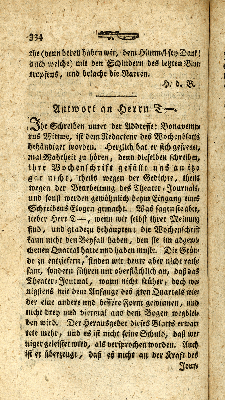 334
che (denn deren haben wir, dem Himmel sey Dank!
auch welche) mit den Schindern des letzten
und belache die Narren.
H. d. R.
Antwort an Herrn T—.
Ihr Schreiben unter der Addresse: Bonaventu-
ras Wittwe, ist dem Redacteur des Wochenblatts
behändiget worden. Herzlich hat er sich gefreut,
mal Wahrheit zu hören, denn dieselben schreiben,
ihre Wochenschrift gefällt uns an sich
gar nicht, theils wegen der Gedichte, theils
wegen der Verarbeitung des Theater-Journals,
und sonst werden gewöhnlich beym Eingang eines
Schreibens Elogen gemacht. Was sagen sie aber,
lieber Herr T—, wenn wir selbst ihrer Meinung
sind, und geradezu behaupten: die Wochenschrift
kann nicht den Beyfall haben, den sie im abgewi-
chenen Quartal hätte und haben mußte. Die Grün-
de zu entziefern, finden wir heute aber nicht rath-
sam, sondern führen nur oberflächlich an, daß das
Theater-Journal, wann nicht früher, doch we-
nigstens mit dem Anfange des 3ten Quartals wie-
der eine andere und bessere Form gewinnen, und
nicht drey und viermal aus dem Bogen wegblei-
ben wird. Der Herausgeber dieses Blatts erwar-
tete mehr, und es ist nicht seine Schuld, daß we-
niger geleistet wird, als versprochen worden. Auch
ist er überzeugt, daß es nicht an der Kraft des
Jour-